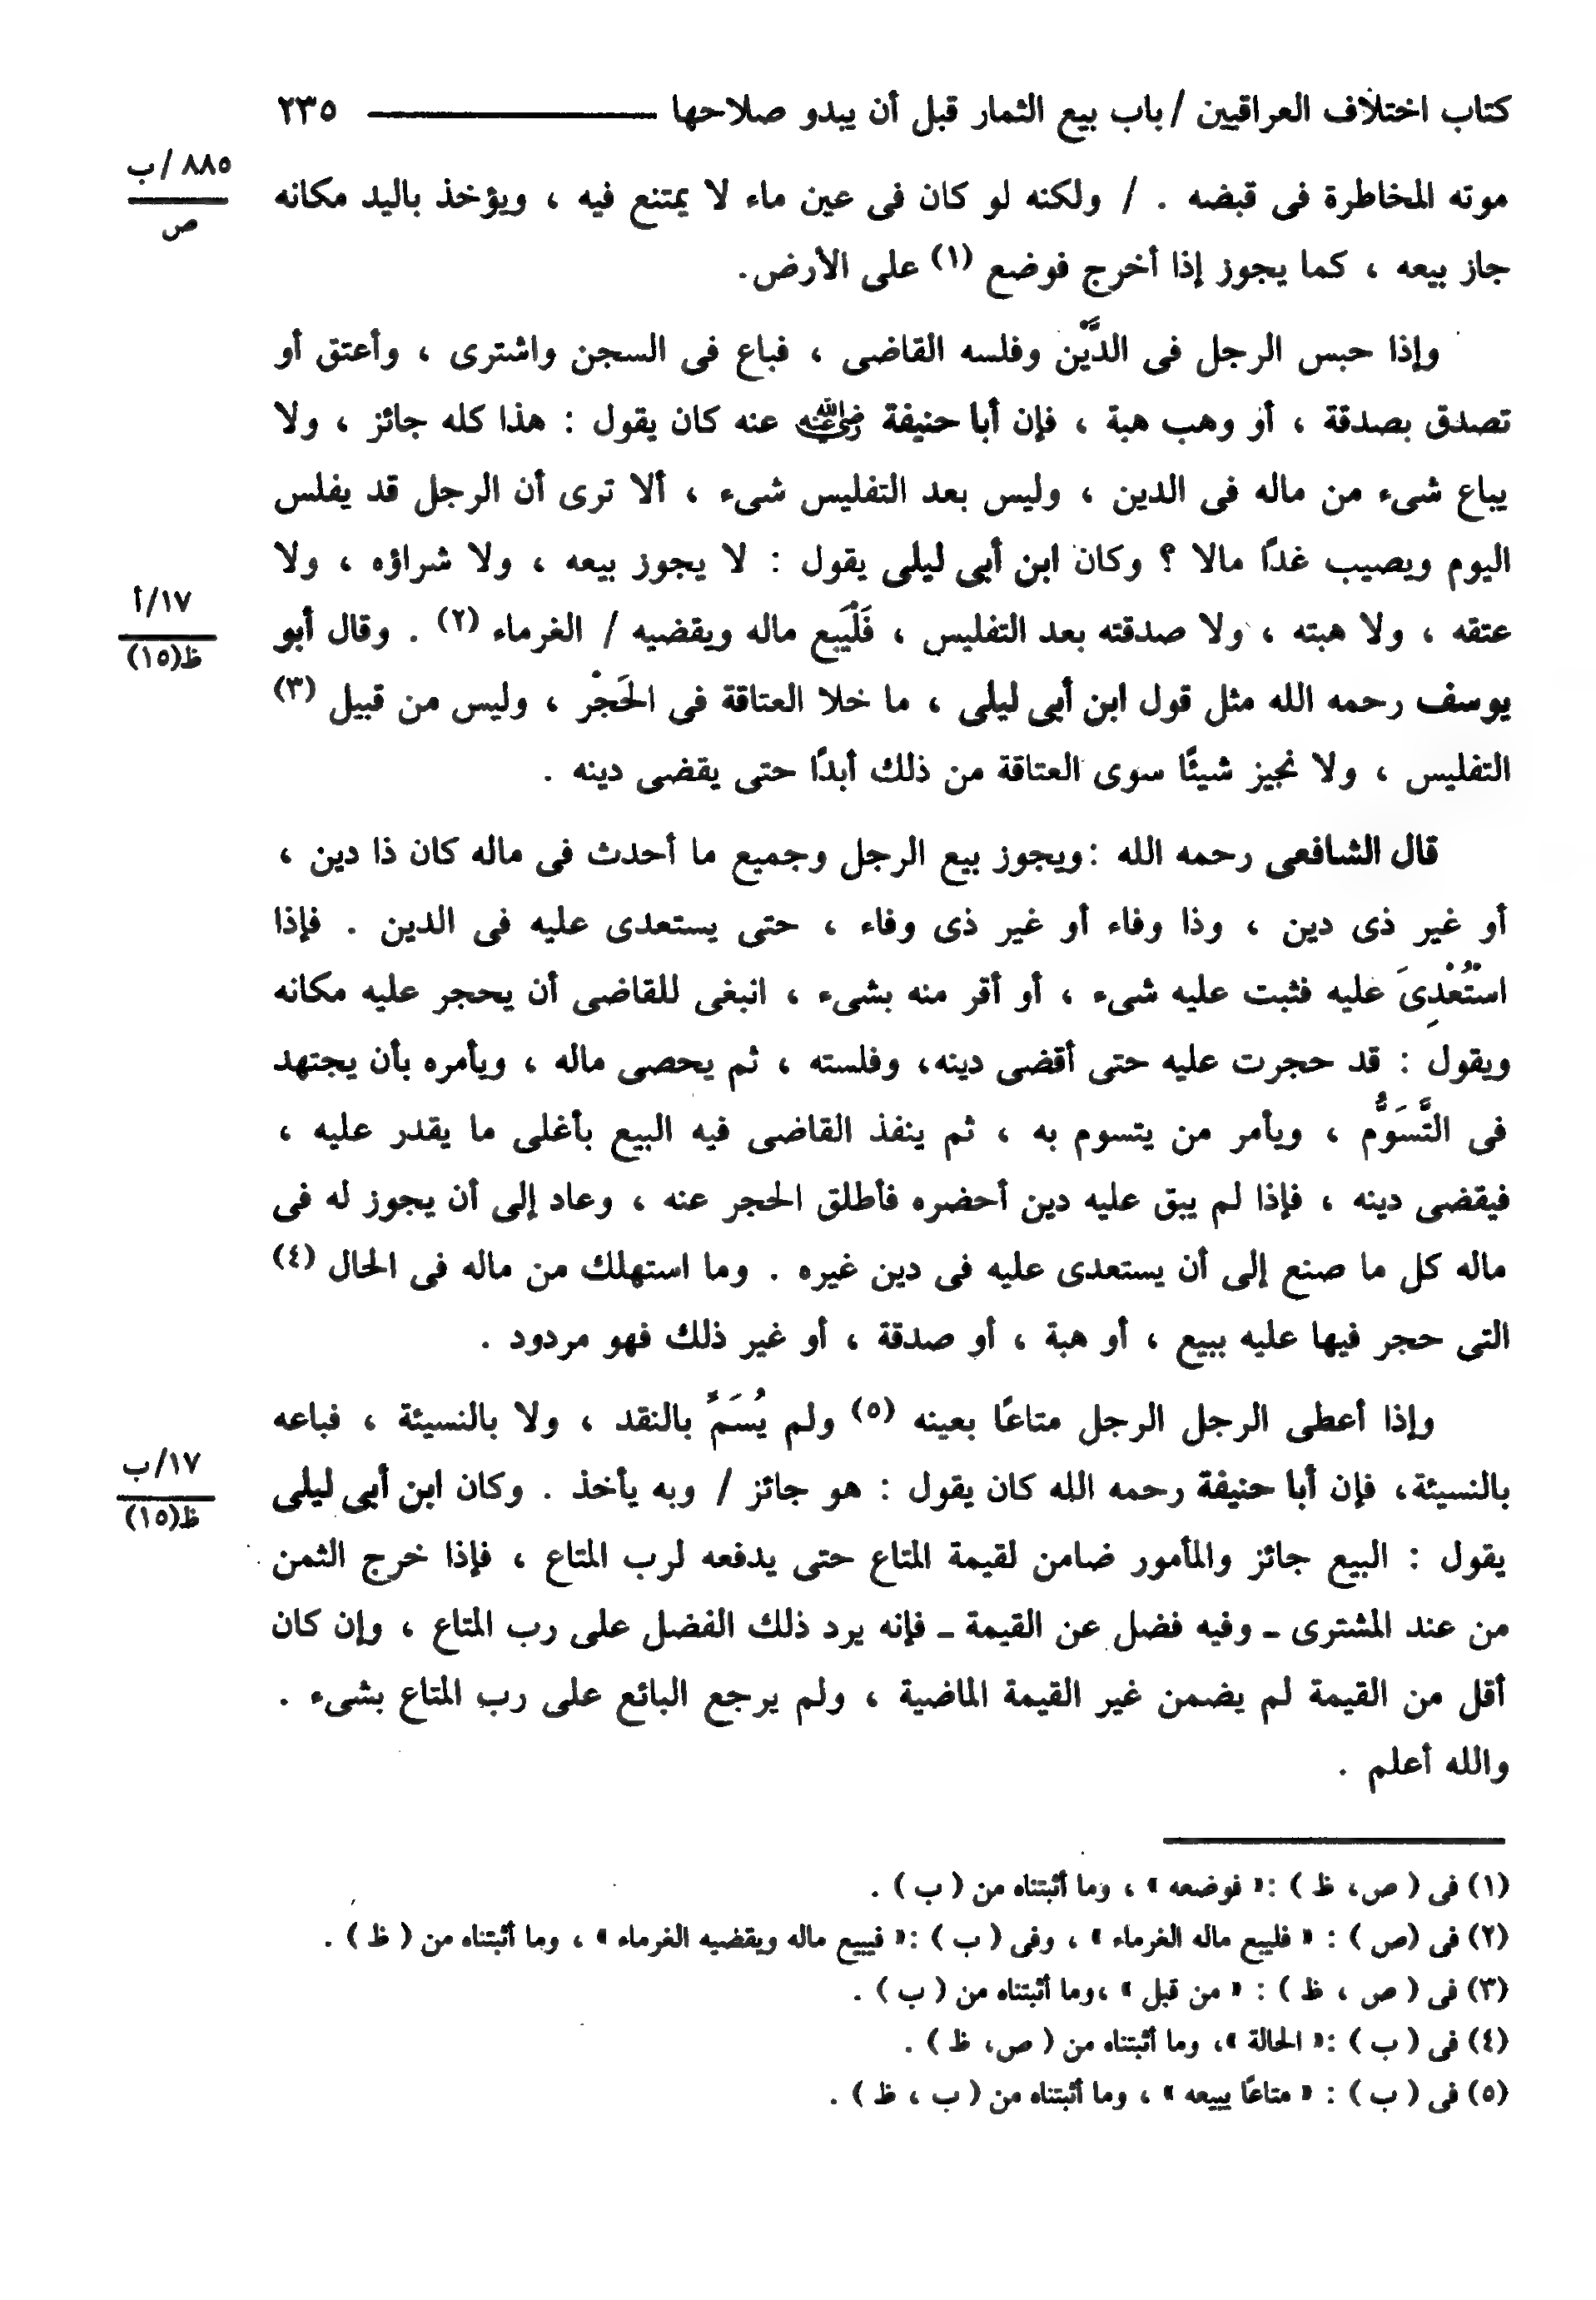 كتاب اختلاف العراقيين / باب بيع الثمار قبل أن يبدو صلاحها ـــــــ ٢٣٥
موته المخاطرة فى قبضه . / ولكنه لو كان فى عين ماء لا يمتنع فيه ، ويؤخذ باليد مكانه
٨٨٥ / ب
ص
جاز بيعه ، كما يجوز إذا أخرج فوضع (١) على الأرض.
وإذا حبس الرجل فى الدَّيْن وفلسه القاضى ، فباع فى السجن واشترى ، وأعتق أو
تصدق بصدقة ، أو وهب هبة ، فإن أبا حنيفة رضي الله عنه عنه كان يقول : هذا كله جائز ، ولا
يباع شىء من ماله فى الدين ، وليس بعد التفليس شىء ، ألا ترى أن الرجل قد يفلس
اليوم ويصيب غدًا مالا ؟ وكان ابن أبى ليلى يقول : لا يجوز بيعه ، ولا شراؤه ، ولا
عتقه ، ولا هبته ، ولا صدقته بعد التفليس ، فَلْيَبع ماله ويقضيه / الغرماء (٢) . وقال أبو
١٧/أ
ظ(١٥)
يوسف رحمه الله مثل قول ابن أبى ليلى ، ما خلا العتاقة فى الحَجْر ، وليس من قبيل (٣)
التفليس ، ولا نجيز شيئًا سوى العتاقة من ذلك أبدًا حتى يقضى دينه .
قال الشافعى رحمه الله :ويجوز بيع الرجل وجميع ما أحدث فى ماله كان ذا دين ،
أو غير ذى دين ، وذا وفاء أو غير ذى وفاء ، حتى يستعدى عليه فى الدين . فإذا
اسْتُعْدِىَ عليه فثبت عليه شىء ، أو أقر منه بشىء ، انبغى للقاضى أن يحجر عليه مكانه
ويقول : قد حجرت عليه حتى أقضى دينه، وفلسته ، ثم يحصى ماله ، ويأمره بأن يجتهد
فى التَّسَوُّم ، ويأمر من يتسوم به ، ثم ينفذ القاضى فيه البيع بأغلى ما يقدر عليه ،
فيقضى دينه ، فإذا لم يبق عليه دين أحضره فأطلق الحجر عنه ، وعاد إلى أن يجوز له فى
ماله كل ما صنع إلى أن يستعدى عليه فى دين غيره . وما استهلك من ماله فى الحال (٤)
التى حجر فيها عليه ببيع ، أو هبة ، أو صدقة ، أو غير ذلك فهو مردود .
وإذا أعطى الرجل الرجل متاعًا بعينه (٥) ولم يُسَمِّ بالنقد ، ولا بالنسيئة ، فباعه
بالنسيئة، فإن أبا حنيفة رحمه الله كان يقول : هو جائز / وبه يأخذ . وكان ابن أبى ليلى
١٧/ب
ظ(١٥)
يقول : البيع جائز والمأمور ضامن لقيمة المتاع حتى يدفعه لرب المتاع ، فإذا خرج الثمن
من عند المشترى ـ وفيه فضل عن القيمة ـ فإنه يرد ذلك الفضل على رب المتاع ، وإن كان
أقل من القيمة لم يضمن غير القيمة الماضية ، ولم يرجع البائع على رب المتاع بشىء .
والله أعلم .
(١) فى ( ص، ظ ) :« فوضعه » ، وما أثبتناه من ( ب ) .
(٢) فى (ص ) : « فليبع ماله الغرماء » ، وفى ( ب ) :« فيبيع ماله ويقضيه الغرماء » ، وما أثبتناه من ( ظ ) .
(٣) فى ( ص ، ظ ) : « من قبل » ،وما أثبتناه من ( ب ) .
(٤) فى ( ب ) :« الحالة »، وما أثبتناه من ( ص، ظ ) .
(٥) فى ( ب ) : « متاعًا يبيعه » ، وما أثبتناه من ( ب ، ظ ) .